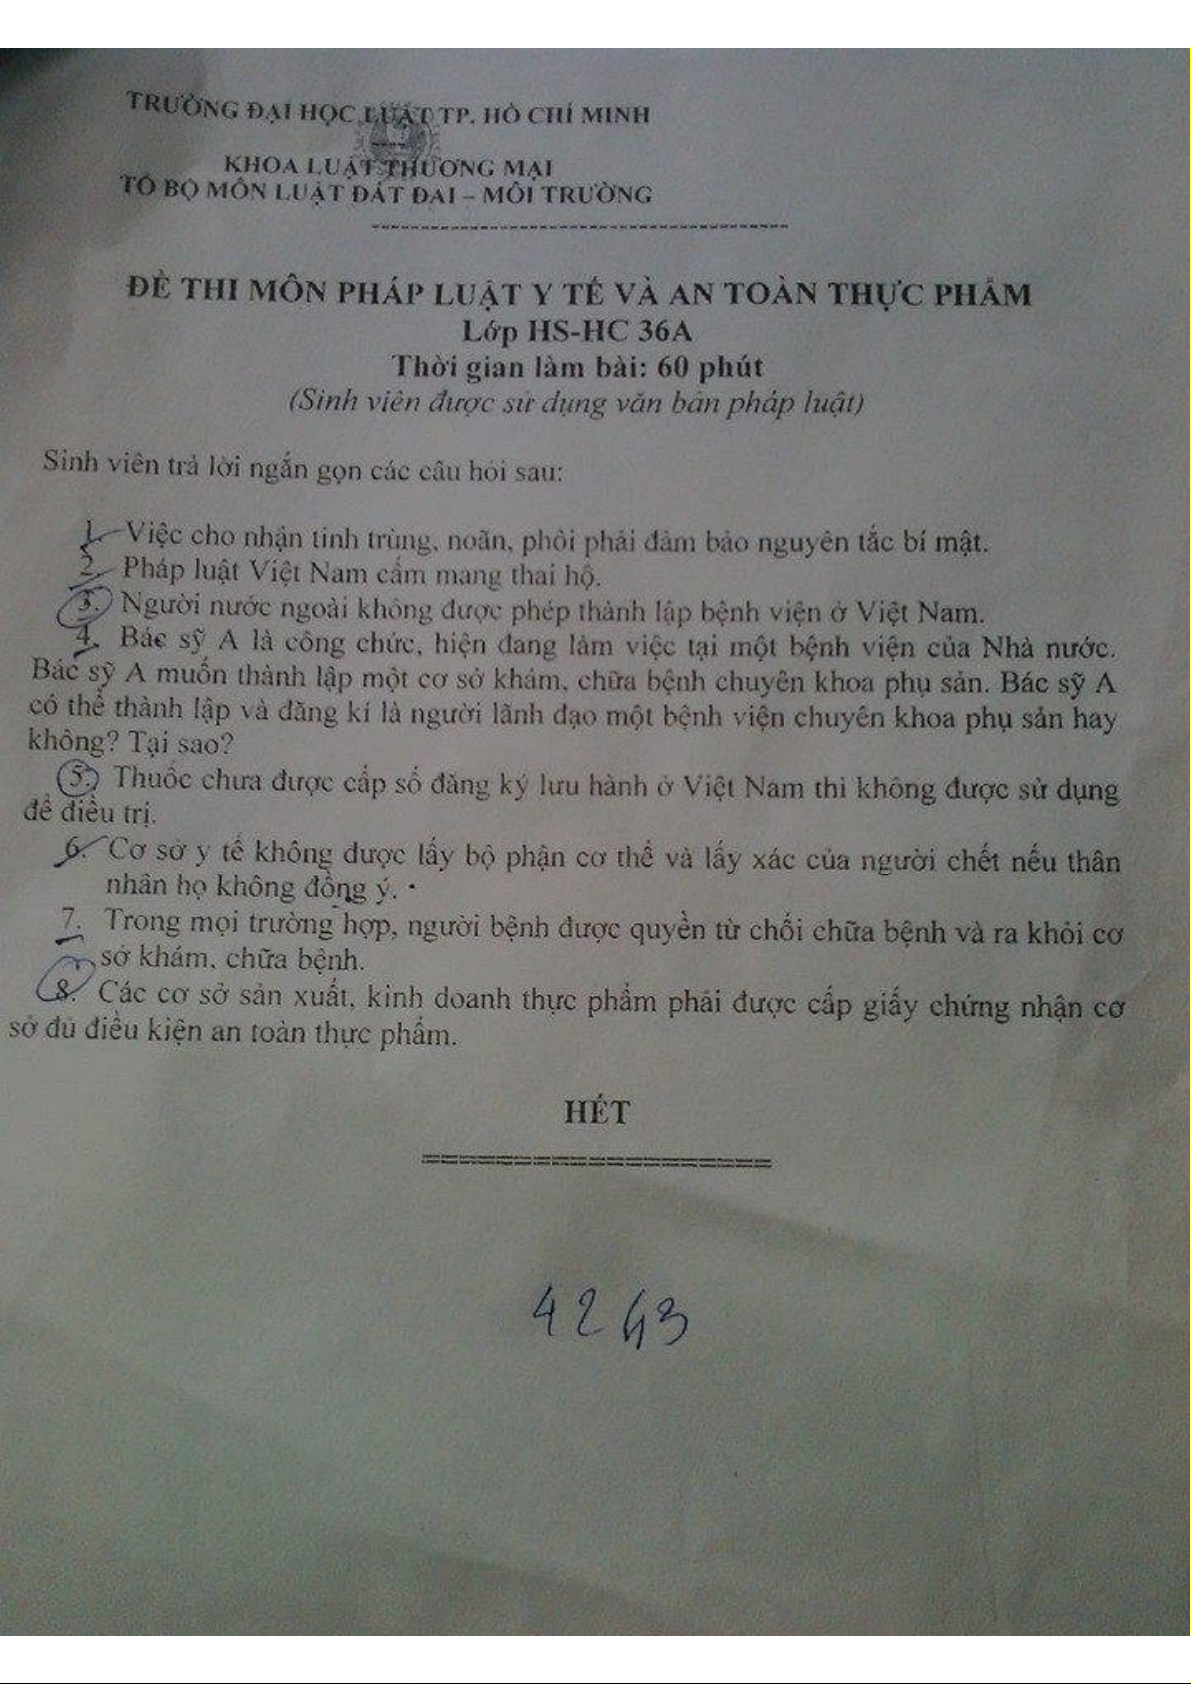 TRƯỜNG ĐẠI HỌC LUẬT TP. HỒ CHÍ MINH
KHOA LUẬT THƯƠNG MẠI
TỔ BỘ MÔN LUẬT ĐẤT ĐAI – MÔI TRƯỜNG
ĐỀ THI MÔN PHÁP LUẬT Y TẾ VÀ AN TOÀN THỰC PHẨM
Lớp HS-HC 36A
Thời gian làm bài: 60 phút
(Sinh viên được sử dụng văn bản pháp luật)
Sinh viên trả lời ngắn gọn các câu hỏi sau:
1. Việc cho nhận tinh trùng, noãn, phôi phải đảm bảo nguyên tắc bí mật.
2. Pháp luật Việt Nam cấm mang thai hộ.
3. Người nước ngoài không được phép thành lập bệnh viện ở Việt Nam.
4. Bác sỹ A là công chức, hiện đang làm việc tại một bệnh viện của Nhà nước.
Bác sỹ A muốn thành lập một cơ sở khám, chữa bệnh chuyên khoa phụ sản. Bác sỹ A
có thể thành lập và đăng kí là người lãnh đạo một bệnh viện chuyên khoa phụ sản hay
không? Tại sao?
5. Thuốc chưa được cấp số đăng ký lưu hành ở Việt Nam thì không được sử dụng
để điều trị.
6. Cơ sở y tế không được lấy bộ phận cơ thể và lấy xác của người chết nếu thân
nhân họ không đồng ý.
7. Trong mọi trường hợp, người bệnh được quyền từ chối chữa bệnh và ra khỏi cơ
sở khám, chữa bệnh.
8. Các cơ sở sản xuất, kinh doanh thực phẩm phải được cấp giấy chứng nhận cơ
sở đủ điều kiện an toàn thực phẩm.
HẾT
4243